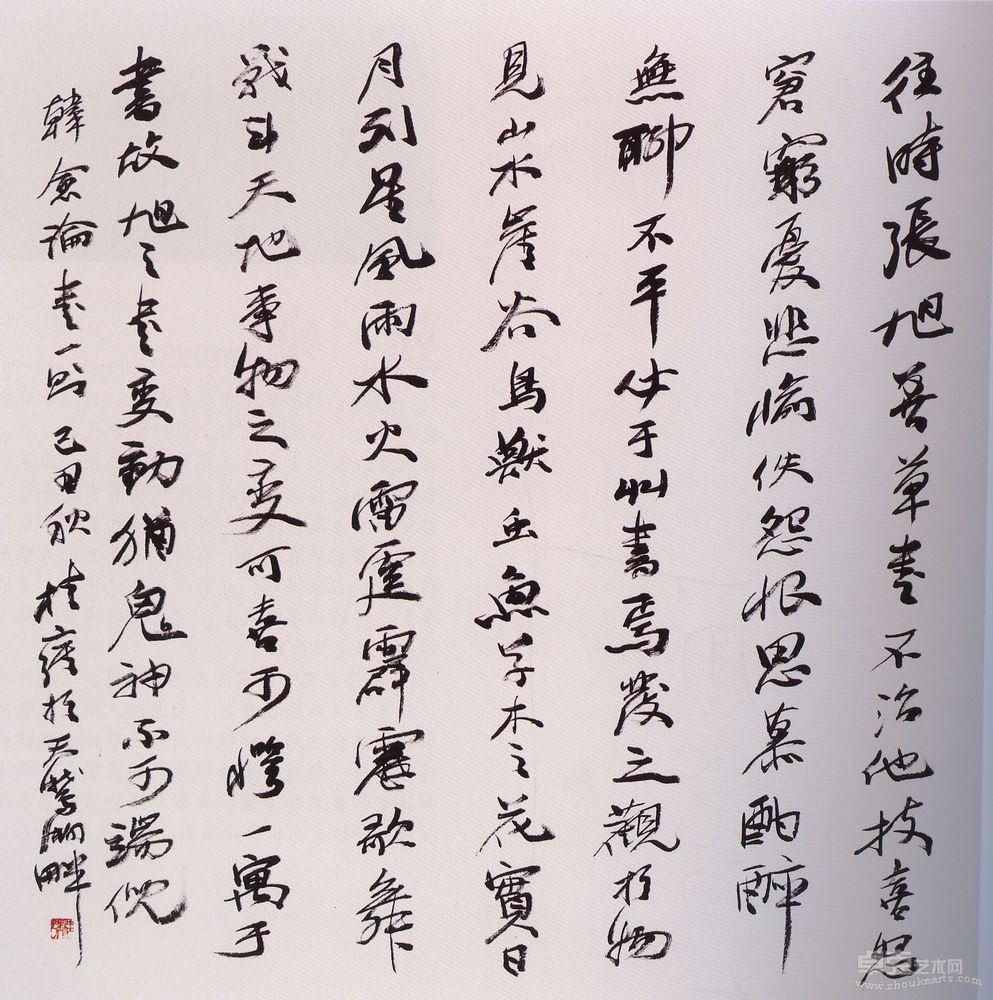 往時張旭善草書不治他技喜怒
窘窮憂悲愉佚怨恨思慕酣醉
無聊不平必于草書焉發之觀於物
見山水崖谷鳥獸虫魚草木之花實日
月列星風雨水火雷霆霹靂歌舞
戰鬥天地事物之變可喜可愕一寓于
書故旭之書變動猶鬼神不可端倪
韓愈論書一則己丑秋桂於天鵝湖畔
卓克艺术网
www.zhoukearts.com